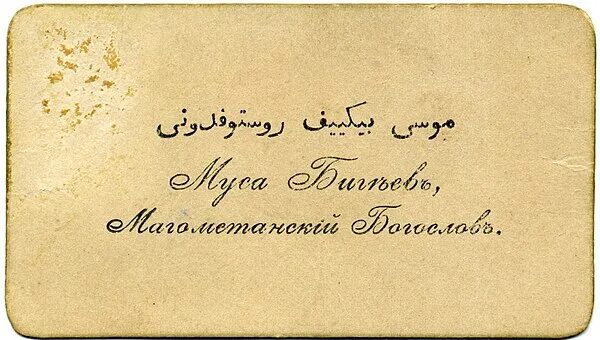 موسى بيكييف روستوفدونى
Муса Бигѣевъ,
Магометанскій Богословъ.